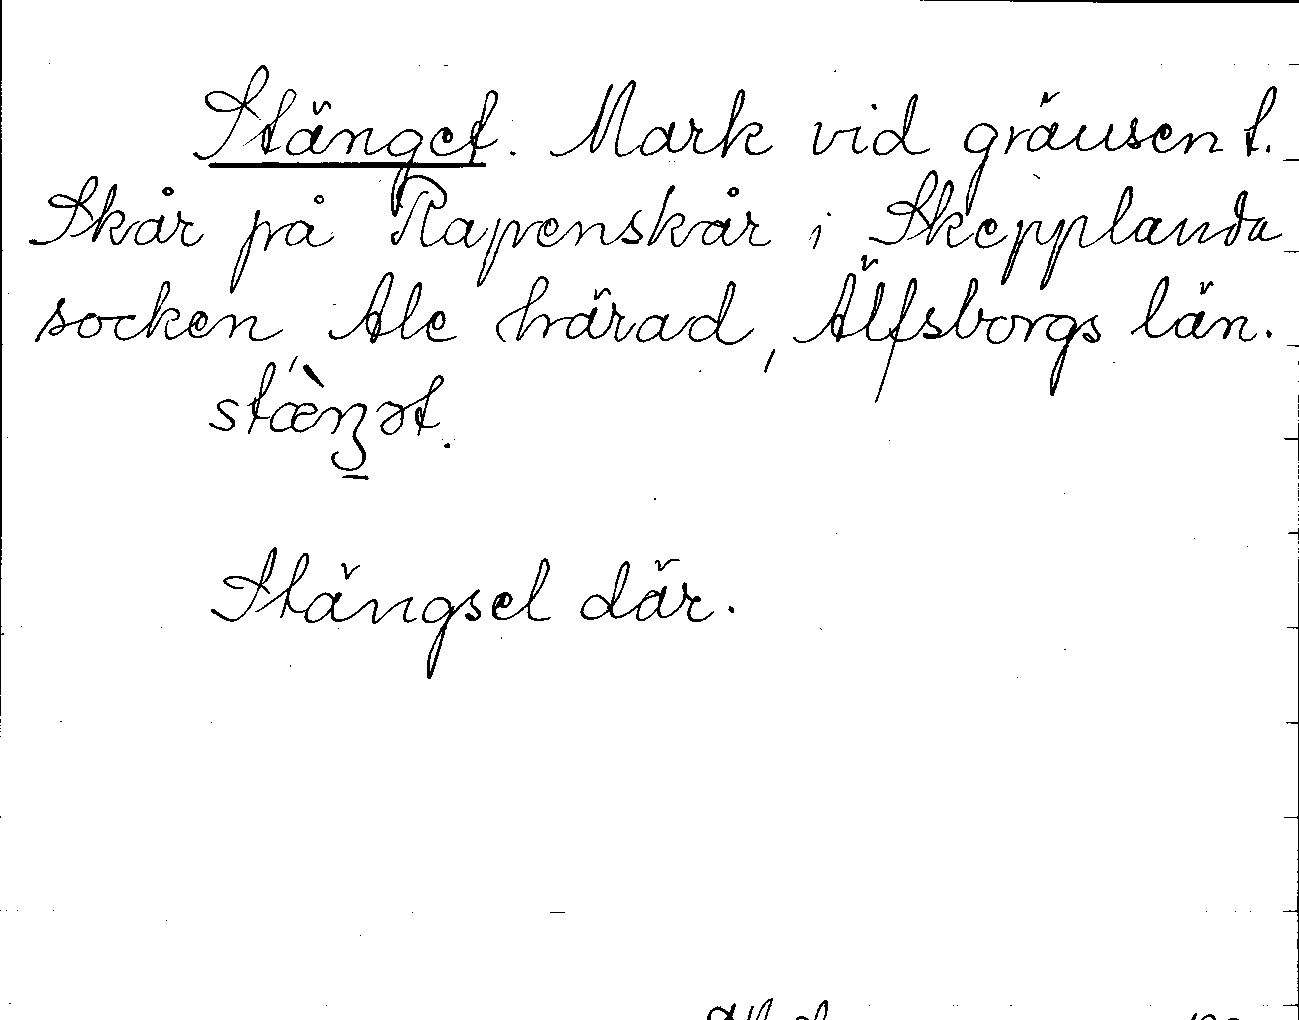 Stänget. Mark vid gränsen t.
Skår på Rapenskår i Skepplanda
socken, Ale härad, Älfsborgs län.
stæ̀ŋət.
Stängsel där.